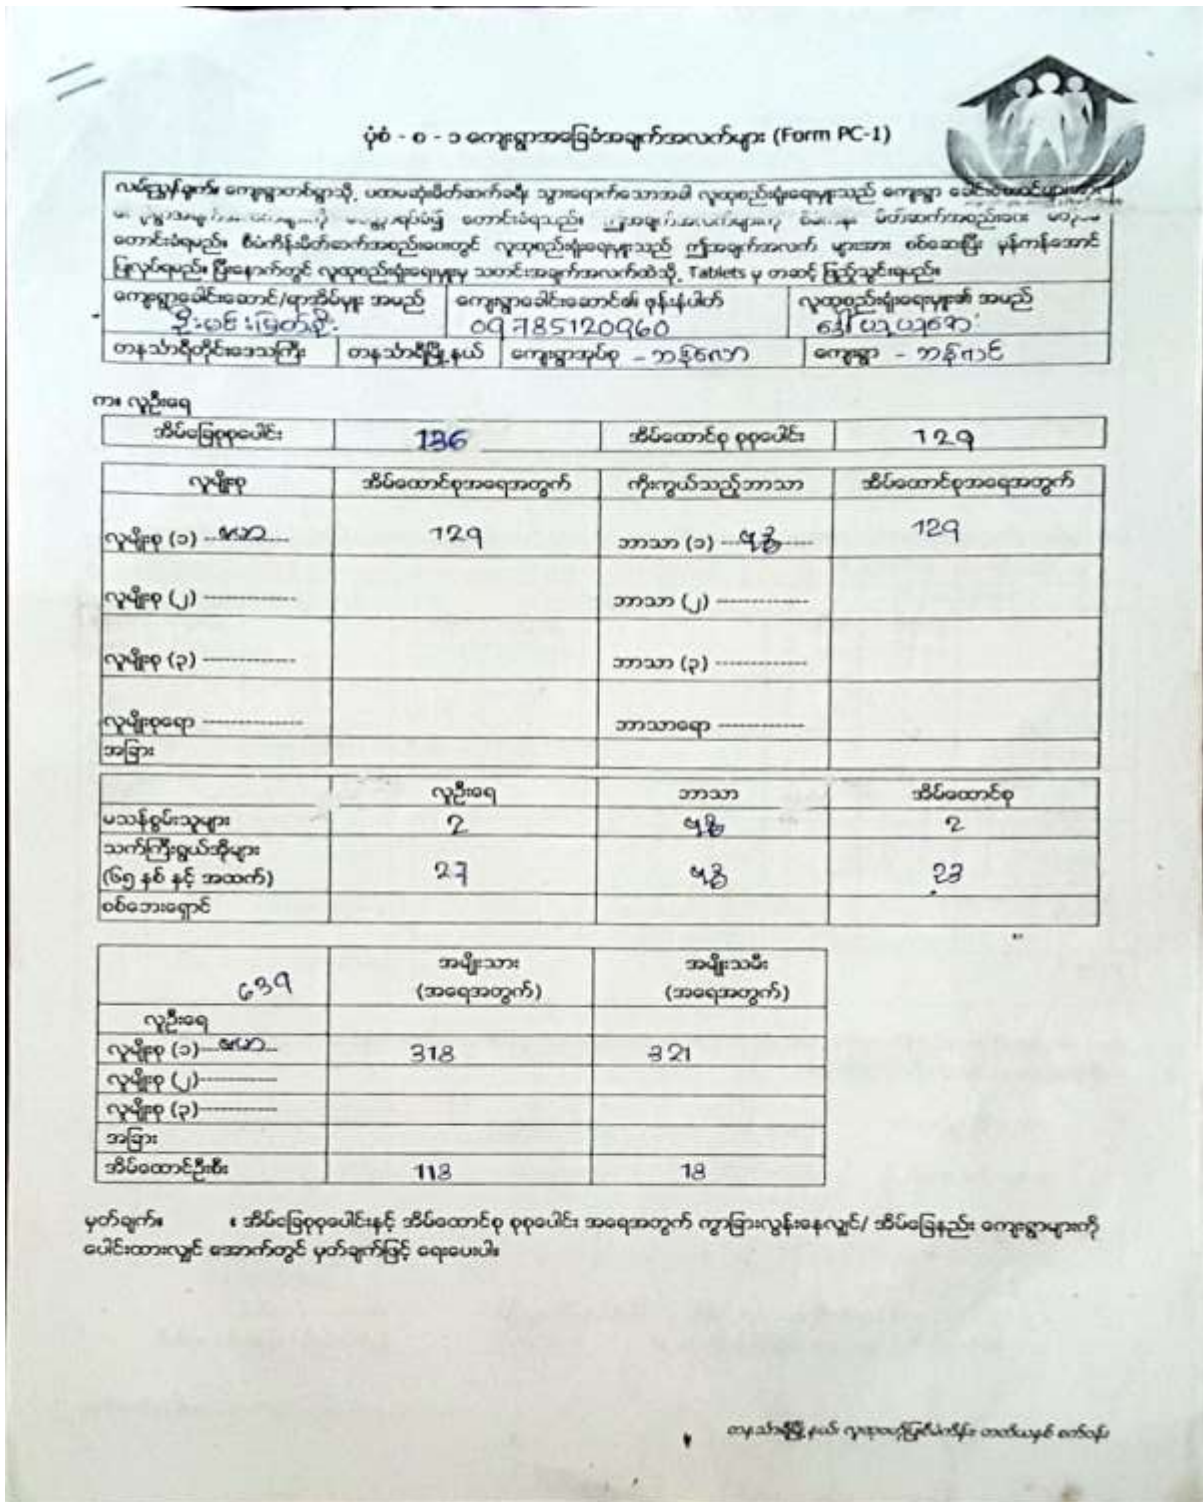 ပုံစံ - ၈ - ၁ ကျေးရွာအခြေခံအချက်အလက်များ (Form PC-1)
လမ်းညွှန်ချက်။ ကျေးရွာတစ်ရွာသို့ ပထမဆုံးမိတ်ဆက်ခရီး သွားရောက်သောအခါ လူထုစည်းရုံးရေးမှူးသည် ကျေးရွာ
တောင်းခံရမည်။ စီမံကိန်းမိတ်ဆက်အစည်းဝေးတွင် လူထုစည်းရုံးရေးမှူးသည် ဤအချက်အလက် များအား စစ်ဆေးပြီး မှန်ကန်အောင်
ပြုလုပ်ရမည်။ ပြီးနောက်တွင် လူထုစည်းရုံးရေးမှူးမှ သတင်းအချက်အလက်ထဲသို့ Tablets မှ တဆင့် ဖြည့်သွင်းရမည်။
ကျေးရွာခေါင်းဆောင်/ရာအိမ်မှူး အမည် ကျေးရွာခေါင်းဆောင်၏ ဖုန်းနံပါတ် လူထုစည်းရုံးရေးမှူး၏ အမည်
09 785120960
တနင်္သာရီတိုင်းဒေသကြီး တနင်္သာရီမြို့နယ် ကျေးရွာအုပ်စု - ကျေးရွာ -
က။ လူဦးရေ
အိမ်ခြေစုစုပေါင်း 136 အိမ်ထောင်စု စုစုပေါင်း 129
လူမျိုးစု အိမ်ထောင်စုအရေအတွက် ကိုးကွယ်သည့်ဘာသာ အိမ်ထောင်စုအရေအတွက်
လူမျိုးစု (၁) ဗမာ 129 ဘာသာ (၁) ဗုဒ္ဓ 129
လူမျိုးစု (၂) ------------- ဘာသာ (၂) -------------
လူမျိုးစု (၃) ------------- ဘာသာ (၃) -------------
လူမျိုးစုရော -------------- ဘာသာရော ------------
အခြား
လူဦးရေ ဘာသာ အိမ်ထောင်စု
မသန်စွမ်းသူများ 2 ဗုဒ္ဓ 2
သက်ကြီးရွယ်အိုများ
(၆၅ နှစ် နှင့် အထက်) 27 ဗုဒ္ဓ 23
စစ်ဘေးရှောင်
အမျိုးသား အမျိုးသမီး
639 (အရေအတွက်) (အရေအတွက်)
လူဦးရေ
လူမျိုးစု (၁) ဗမာ 318 321
လူမျိုးစု (၂)-----------
လူမျိုးစု (၃)-----------
အခြား
အိမ်ထောင်ဦးစီး 113 18
မှတ်ချက်။ ။ အိမ်ခြေစုစုပေါင်းနှင့် အိမ်ထောင်စု စုစုပေါင်း အရေအတွက် ကွာခြားလွန်းနေလျှင်/ အိမ်ခြေနည်း ကျေးရွာများကို
ပေါင်းထားလျှင် အောက်တွင် မှတ်ချက်ဖြင့် ရေးပေးပါ။